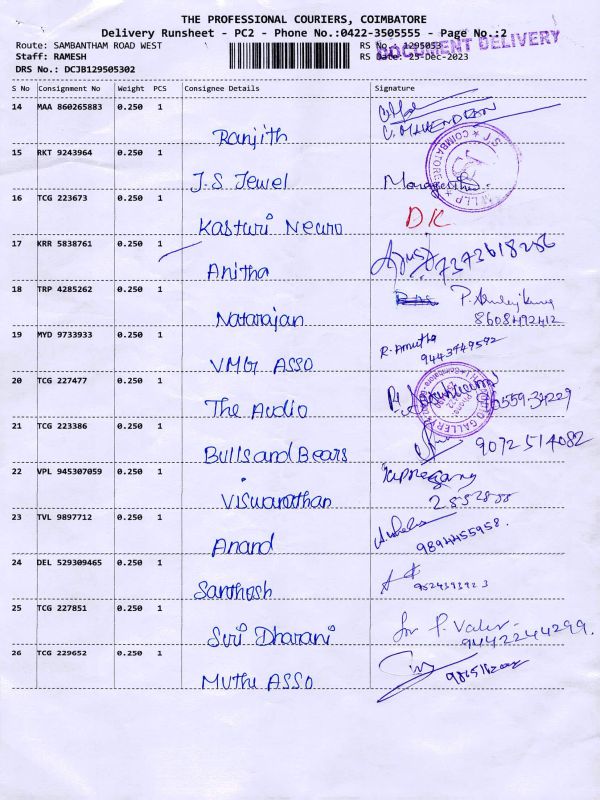 THE PROFESSIONAL COURIERS, COIMBATORE
Delivery Runsheet - PC2 - Phone No.:0422-3505555 - Page No.:2
Route: SAMBANTHAM ROAD WEST
RS No.: 1295053
DOCUMENT DELIVERY
Staff: RAMESH
RS Date: 25-Dec-2023
DRS No.: DCJB129505302
S No Consignment No Weight PCS Consignee Details Signature
14 MAA 860265883 0.250 1
Ranjith C. MAHENDRAN
15 RKT 9243964 0.250 1
J.S Jewel
16 TCG 223673 0.250 1
Kasturi Neuro DK
17 KRR 5838761 0.250 1
Anitha 7373618286
18 TRP 4285262 0.250 1
Natarajan 8608492412
19 MYD 9733933 0.250 1
VMGr ASSO R. Amutha
9443949592
20 TCG 227477 0.250 1
The Audio
21 TCG 223386 0.250 1
Bulls and Bears 9072514082
22 VPL 945307059 0.250 1
Viswanathan
23 TVL 9897712 0.250 1
Anand 9894455958.
24 DEL 529309465 0.250 1
Santhosh 9524393923
25 TCG 227851 0.250 1
Sri Dharani for P. Valar
9442244299.
26 TCG 229652 0.250 1
Muthu ASSO